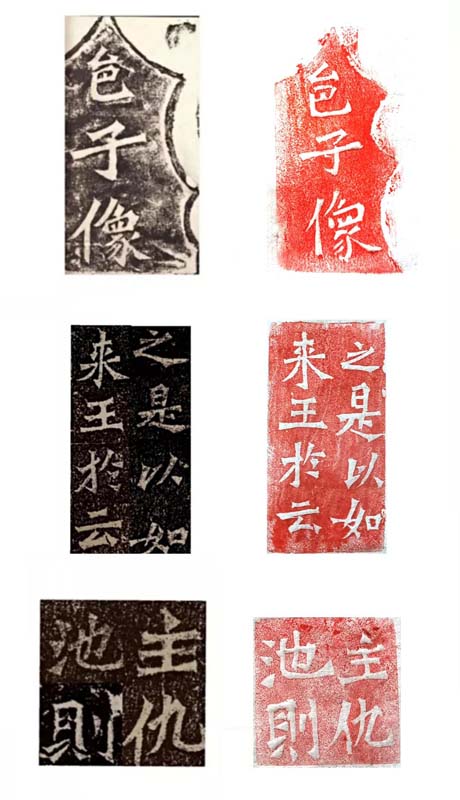 邑子像
邑子像
之是以如
来王於云
之是以如
来王於云
主仇
池則
主仇
池則